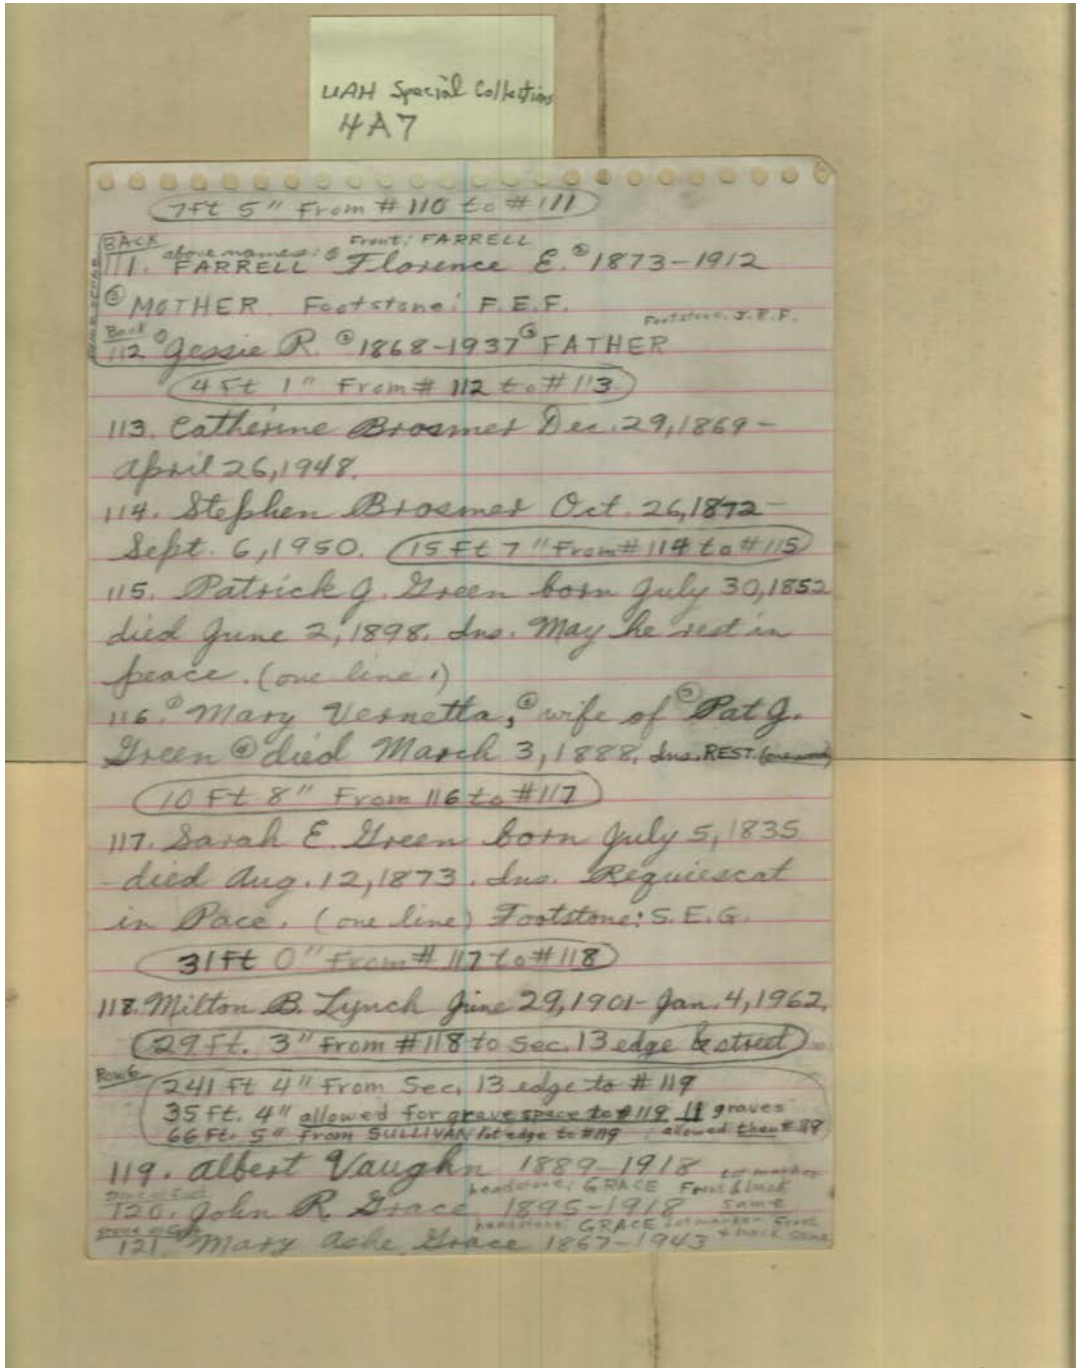 UAH Special Collections
4A7
7ft 5" From #110 to #111
BACK Front: FARRELL
above names: ①
111. FARRELL Florence E. ② 1873-1912
③ MOTHER. Footstone: F.E.F.
Back Footstone: J.R.F.
112 ① Jessie R. ② 1868-1937 ③ FATHER
4 ft 1" From # 112 to #113
113. Catherine Brosmer Dec. 29, 1869-
April 26, 1948.
114. Stephen Brosmer Oct. 26, 1872-
Sept. 6, 1950. 15 ft 7" From # 114 to #115
115. Patrick J. Green born July 30, 1852
died June 2, 1898. Ins. May he rest in
peace. (one line.)
116. ① Mary Vernetta, ② wife of ③ Pat J.
Green ④ died March 3, 1888. Ins. REST. (one word)
10 Ft 8" From 116 to #117
117. Sarah E. Green born July 5, 1835
-died Aug. 12, 1873. Ins. Requiescat
in Pace. (one line) Footstone: S.E.G.
31 ft 0" From # 117 to #118
118. Milton B. Lynch June 29, 1901-Jan. 4, 1962.
29 Ft. 3" From #118 to Sec. 13 edge & street
Row 6
241 ft 4" From Sec. 13 edge to # 119
35 Ft. 4" allowed for grave space to #119 11 graves
66 Ft. 5" From SULLIVAN lot edge to #119 allowed then #119
119. Albert Vaughn 1889-1918
headstone: GRACE Front & back same
120. John R. Grace 1895-1918
headstone: GRACE lot marker Front & back same
121. Mary Ashe Grace 1867-1943